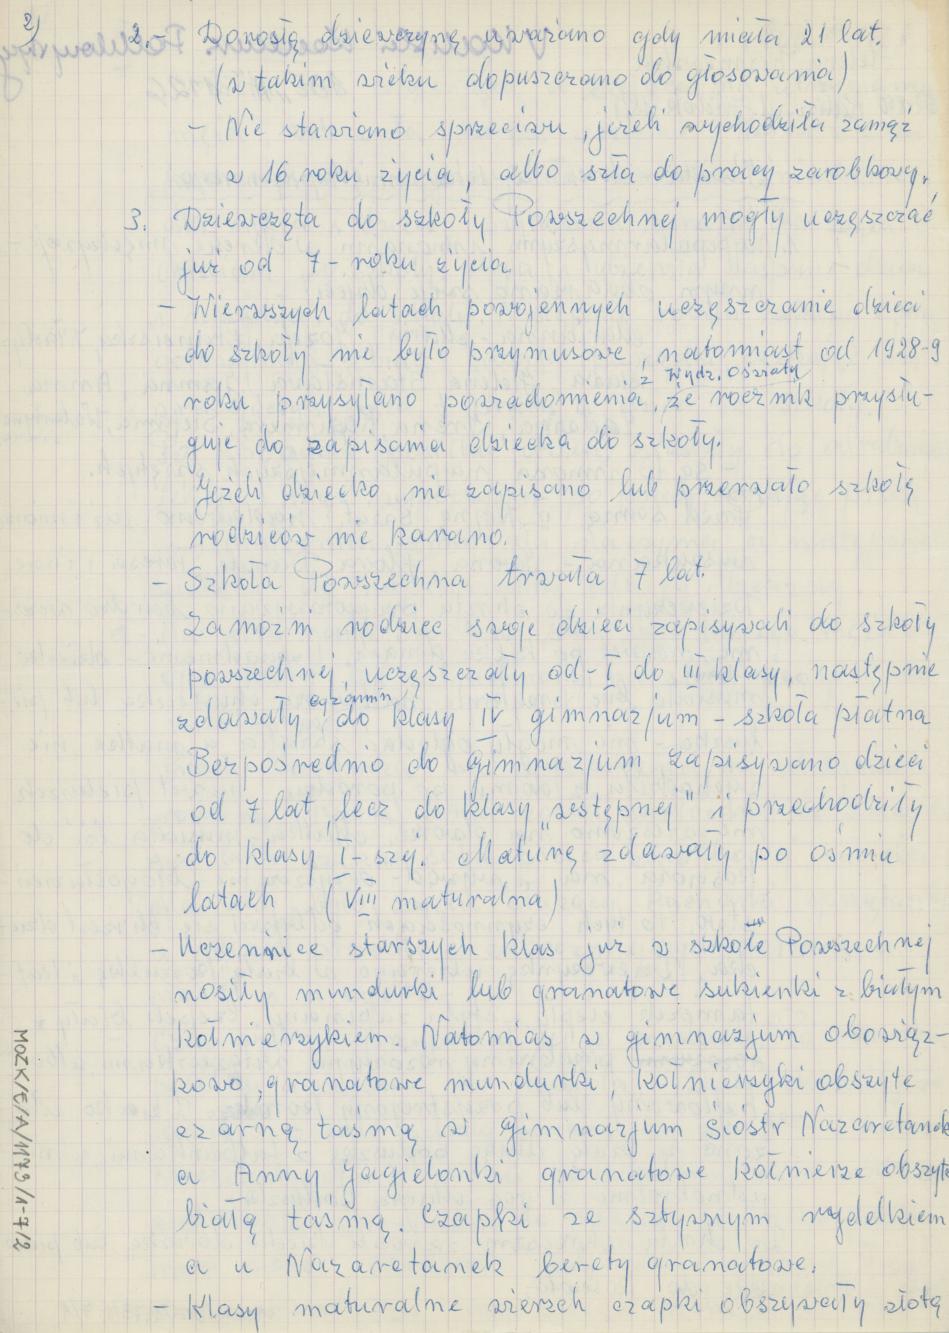 2)
2.- Dorosłą dziewczynę uważano gdy miała 21 lat.
(w takim wieku dopuszczano do głosowania)
- Nie stawiano sprzeciwu, jeżeli wychodziła zamąż
w 16 roku życia, albo szła do pracy zarobkowej.
3. Dziewczęta do szkoły Powszechnej mogły uczęszczać
już od 7-roku życia
- Wierwszych latach powojennych uczęszczanie dzieci
do szkoły nie było przymusowe, natomiast od 1928-9
z Wydz. Oświaty
roku przysyłano powiadomienia, że rocznik przysłu-
guje do zapisania dziecka do szkoły.
Jeżeli dziecko nie zapisano lub przerwało szkołę
rodziców nie karano.
- Szkoła Powszechna trwała 7 lat.
Zamożni rodzice swoje dzieci zapisywali do szkoły
powszechnej, uczęszczały od-I do III klasy, następnie
egzamin
zdawały do klasy IV gimnazjum - szkoła płatna
Bezpośrednio do gimnazjum zapisywano dzieci
od 7 lat, lecz do klasy „wstępnej" i przechodziły
do klasy I-szej. Maturę zdawały po ośmiu
latach (VIII maturalna)
- Uczennice starszych klas już w szkole Powszechnej
nosiły mundurki lub granatowe sukienki z białym
kołnierzykiem. Natomias w gimnazjum obowiąz-
kowo, granatowe mundurki, kołnierzyki obszyte
czarną taśmą w Gimnazjum Sióstr Nazaretanek
a Anny Jagielonki granatowe kołnierze obszyte
białą taśmą. Czapki ze sztywnym rydelkiem
a u Nazaretanek berety granatowe.
- Klasy maturalne wierzch czapki obszywały złotą
MOZK/E/A/1173/1-7/2